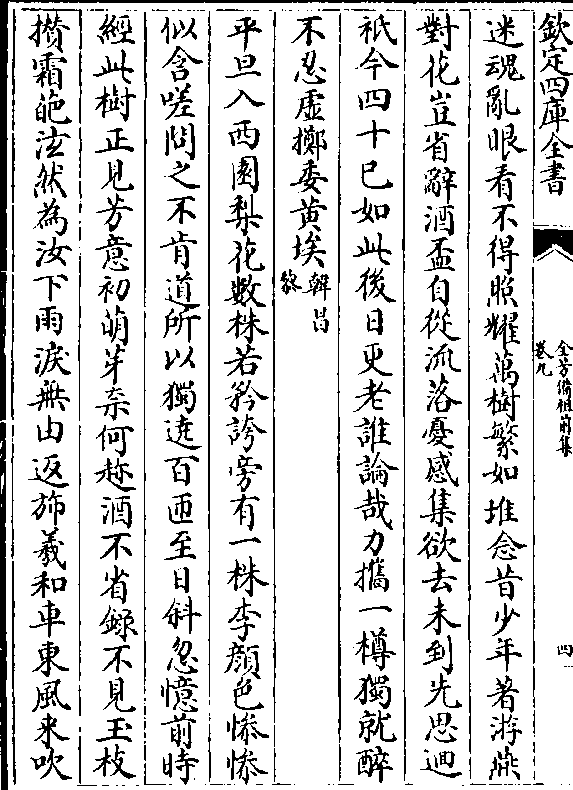 欽定四庫全書
全芳備祖前集
卷九
四
迷魂亂眼看不得照耀萬樹繁如堆念昔少年著游燕
對花豈省辭酒盃自從流落憂感集欲去未到先思迴
祇今四十已如此後日更老誰論哉力攜一樽獨就醉
不忍虛擲委黃埃韓昌
黎
平旦入西園梨花數株若矜誇旁有一株李顔色慘慘
似含嗟問之不肯道所以獨遶百匝至日斜忽憶前時
經此樹正見芳意初萌芽奈何趂酒不省錄不見玉枝
攅霜葩泫然為汝下雨淚無由返斾羲和車東風来吹